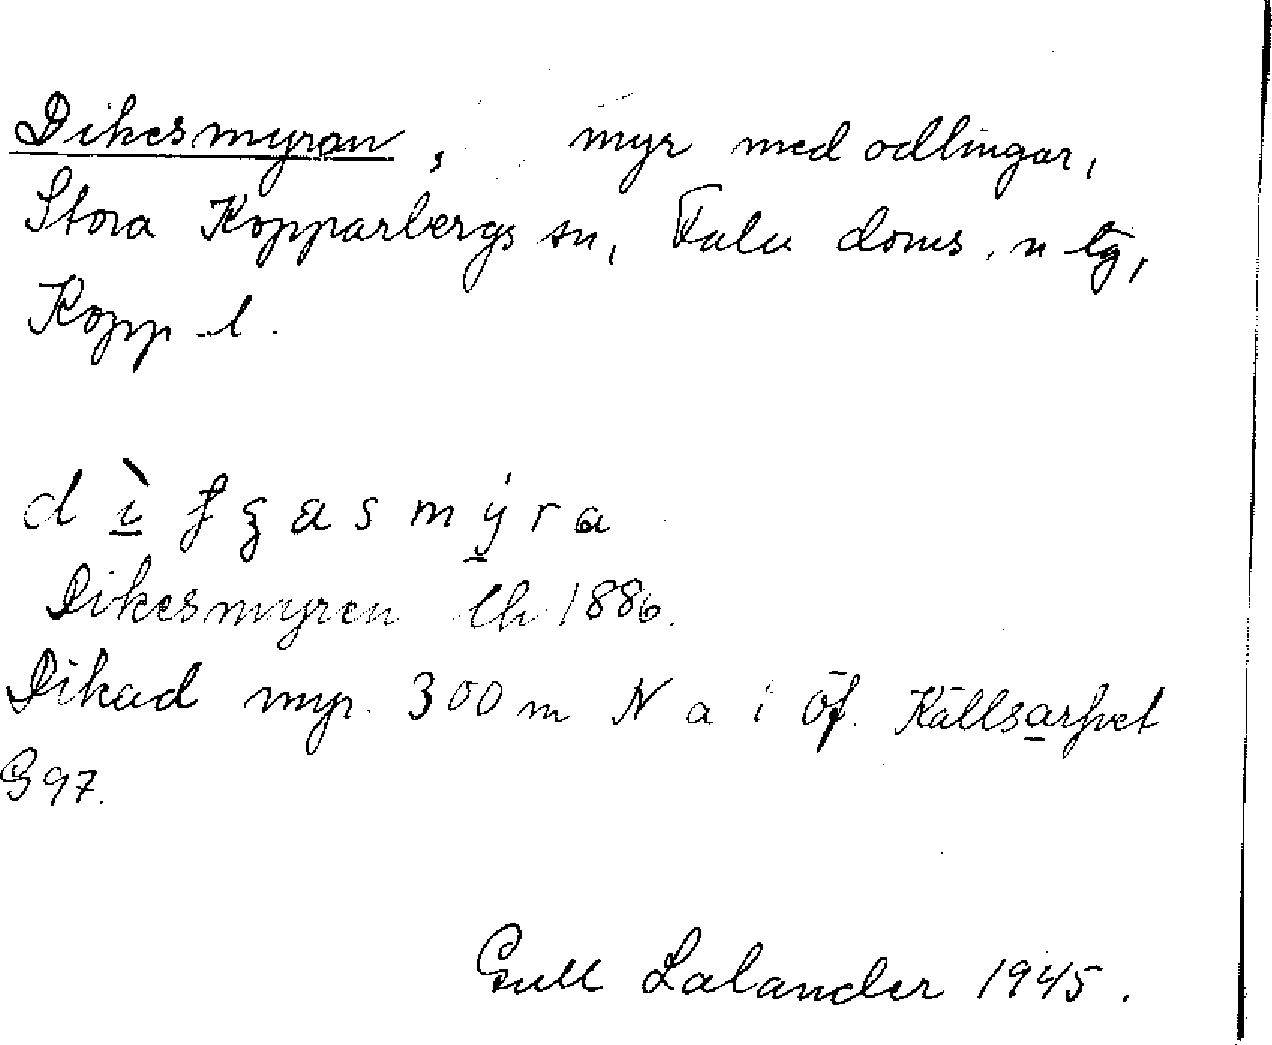 Dikesmyran, myr med odlingar,
Stora Kopparbergs sn, Falu doms. n tg,
Kopp l.
dasmýra
Dikesmyren lh 1886.
Dikad myr. 300 m N a i öf. Källsarfvet
G 97.
Gull Lalander 1945.